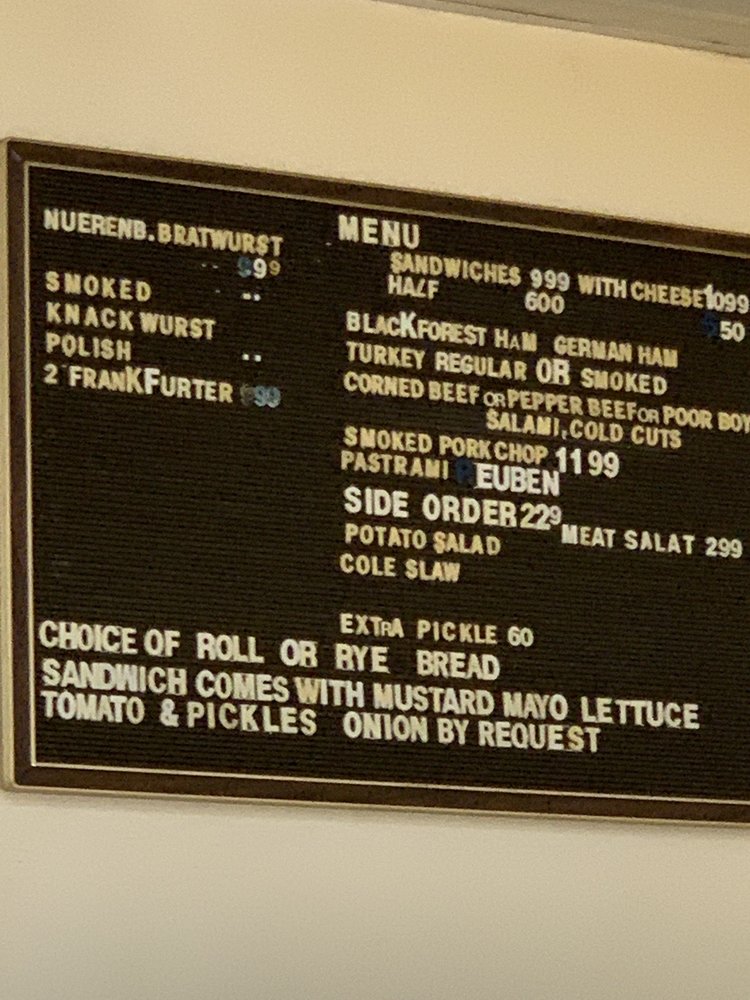 NUERENB. BRATWURST
99
SMOKED ..
KNACKWURST
POLISH ..
2 FRANKFURTER 99
MENU
SANDWICHES 999 WITH CHEESE 1099
HALF 600 50
BLACKFOREST HAM GERMAN HAM
TURKEY REGULAR OR SMOKED
CORNED BEEF OR PEPPER BEEF OR POOR BOY
SALAMI, COLD CUTS
SMOKED PORK CHOP 1199
PASTRAMI REUBEN
SIDE ORDER 229 MEAT SALAT 299
POTATO SALAD
COLE SLAW
EXTRA PICKLE 60
CHOICE OF ROLL OR RYE BREAD
SANDWICH COMES WITH MUSTARD MAYO LETTUCE
TOMATO & PICKLES ONION BY REQUEST